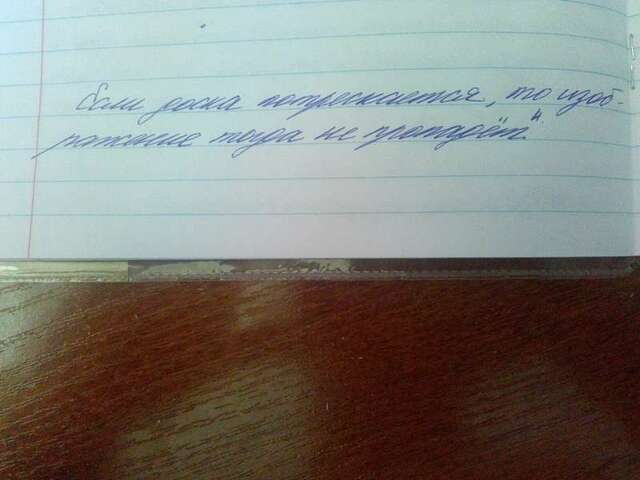 Если доска потрескается, то изоб-
ражение тогда не пропадёт"